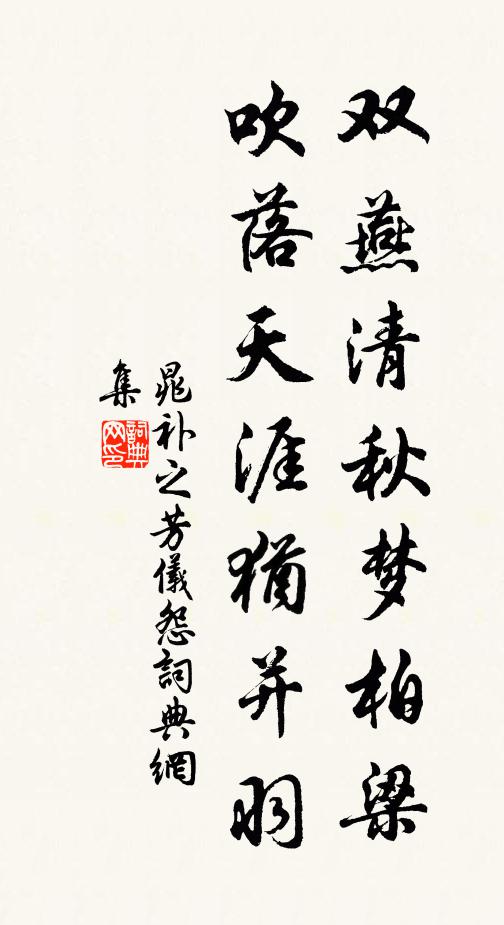 双燕清秋梦柏梁
吹落天涯犹并羽
晁补之芳儀怨詞典網
集
詞典网印